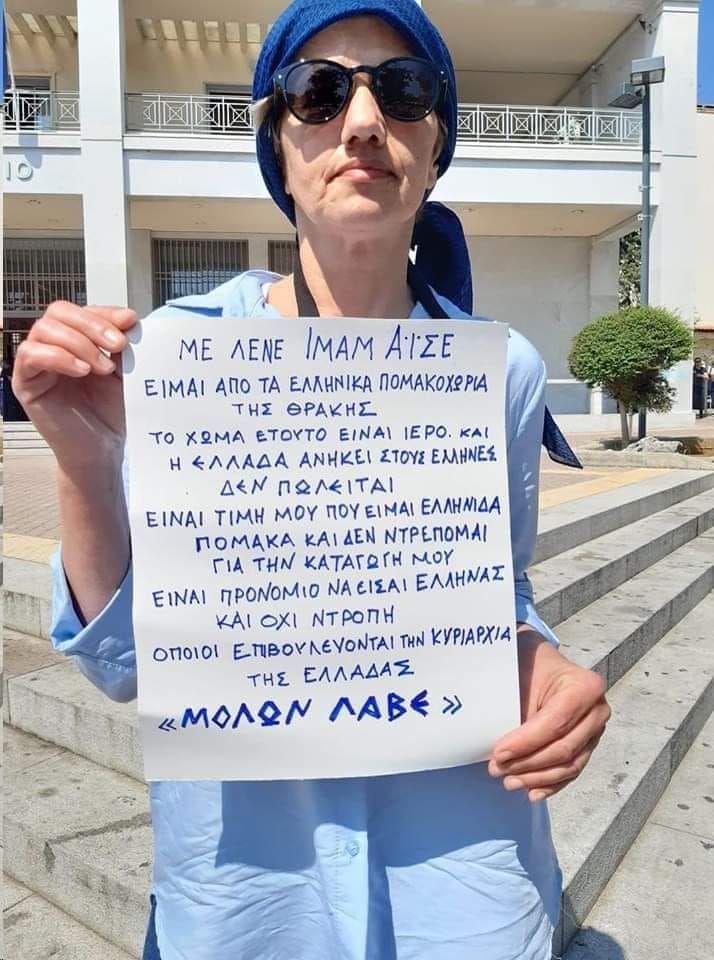 ΙΟ
ΜΕ ΛΕΝΕ ΙΜΑΜ ΑΪΣΕ
ΕΙΜΑΙ ΑΠΟ ΤΑ ΕΛΛΗΝΙΚΑ ΠΟΜΑΚΟΧΩΡΙΑ
ΤΗΣ ΘΡΑΚΗΣ
ΤΟ ΧΩΜΑ ΕΤΟΥΤΟ ΕΙΝΑΙ ΙΕΡΟ. ΚΑΙ
Η ΕΛΛΑΔΑ ΑΝΗΚΕΙ ΣΤΟΥΣ ΕΛΛΗΝΕΣ
ΔΕΝ ΠΩΛΕΙΤΑΙ
ΕΙΝΑΙ ΤΙΜΗ ΜΟΥ ΠΟΥ ΕΙΜΑΙ ΕΛΛΗΝΙΔΑ
ΠΟΜΑΚΑ ΚΑΙ ΔΕΝ ΝΤΡΕΠΟΜΑΙ
ΓΙΑ ΤΗΝ ΚΑΤΑΓΩΓΗ ΜΟΥ
ΕΙΝΑΙ ΠΡΟΝΟΜΙΟ ΝΑ ΕΙΣΑΙ ΕΛΛΗΝΑΣ
ΚΑΙ ΟΧΙ ΝΤΡΟΠΗ
ΟΠΟΙΟΙ ΕΠΙΒΟΥΛΕΥΟΝΤΑΙ ΤΗΝ ΚΥΡΙΑΡΧΙΑ
ΤΗΣ ΕΛΛΑΔΑΣ
«ΜΟΛΩΝ ΛΑΒΕ»